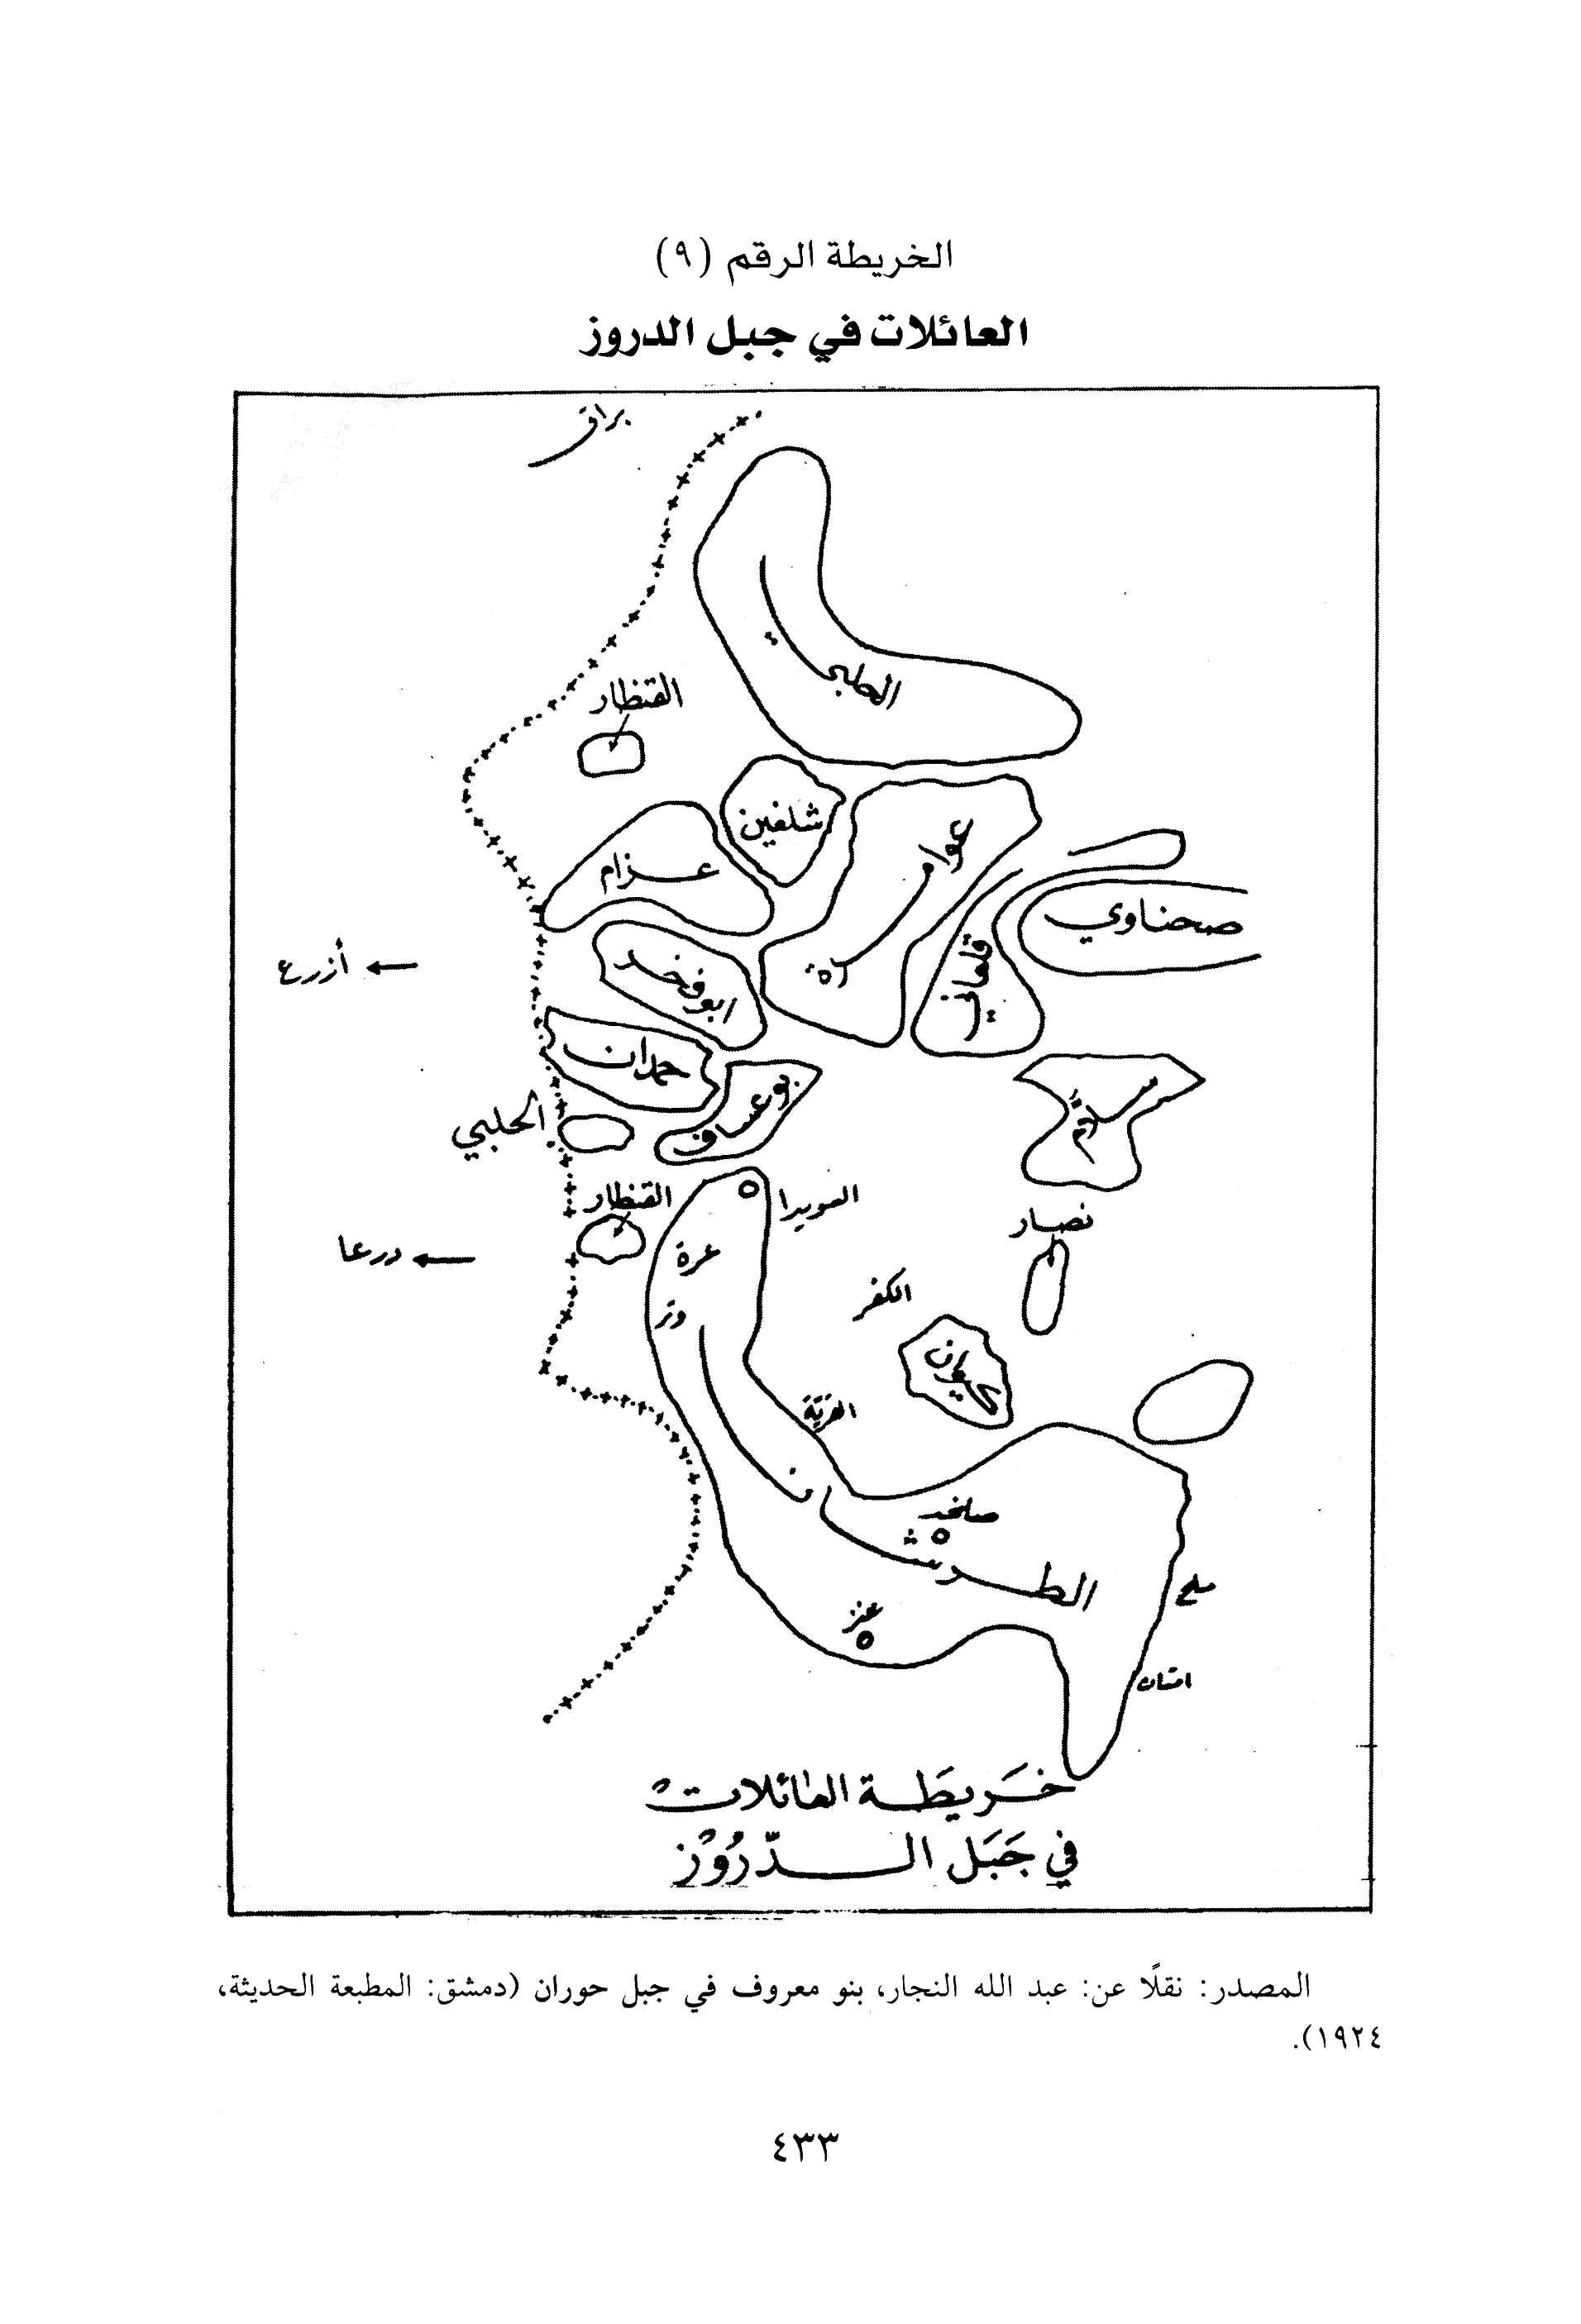 الخريطة الرقم (٩)
العائلات في جبل الدروز
براق
القنظار
شلغين
عزام
صحناوي
أزرع
قلعاني
ابو فخر
حمدان
الحلبي
بو عساف
سلام
القنظار
السويدا
نصار
درعا
عرة
الكفر
القريّة
صلخد
الطرشان
ملح
عنز
امتان
خَريطَة العائلات
في جَبَل الدّرُوْز
المصدر: نقلًا عن: عبد الله النجار، بنو معروف في جبل حوران (دمشق: المطبعة الحديثة،
١٩٢٤).
٤٣٣